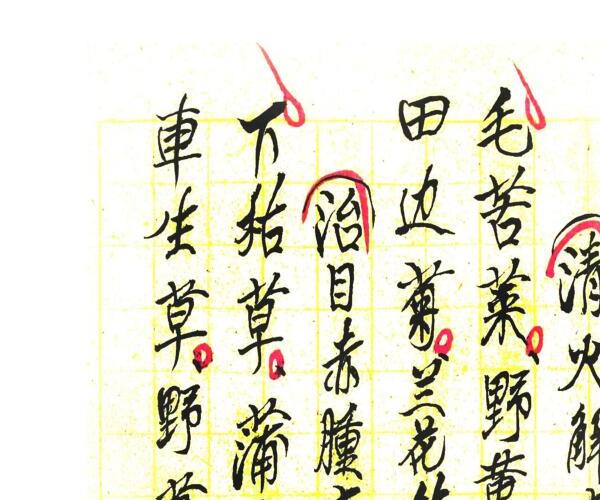 清火解
毛苦菜。野黄
田边菊。兰花
治目赤腫
下枯草。蒲
車生草。野